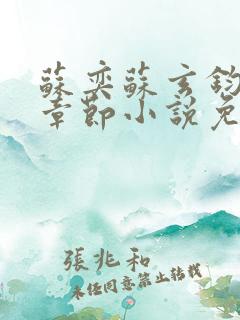 蘇奕蘇玄鈞
章節小說免
張兆和
未經同意禁止轉載